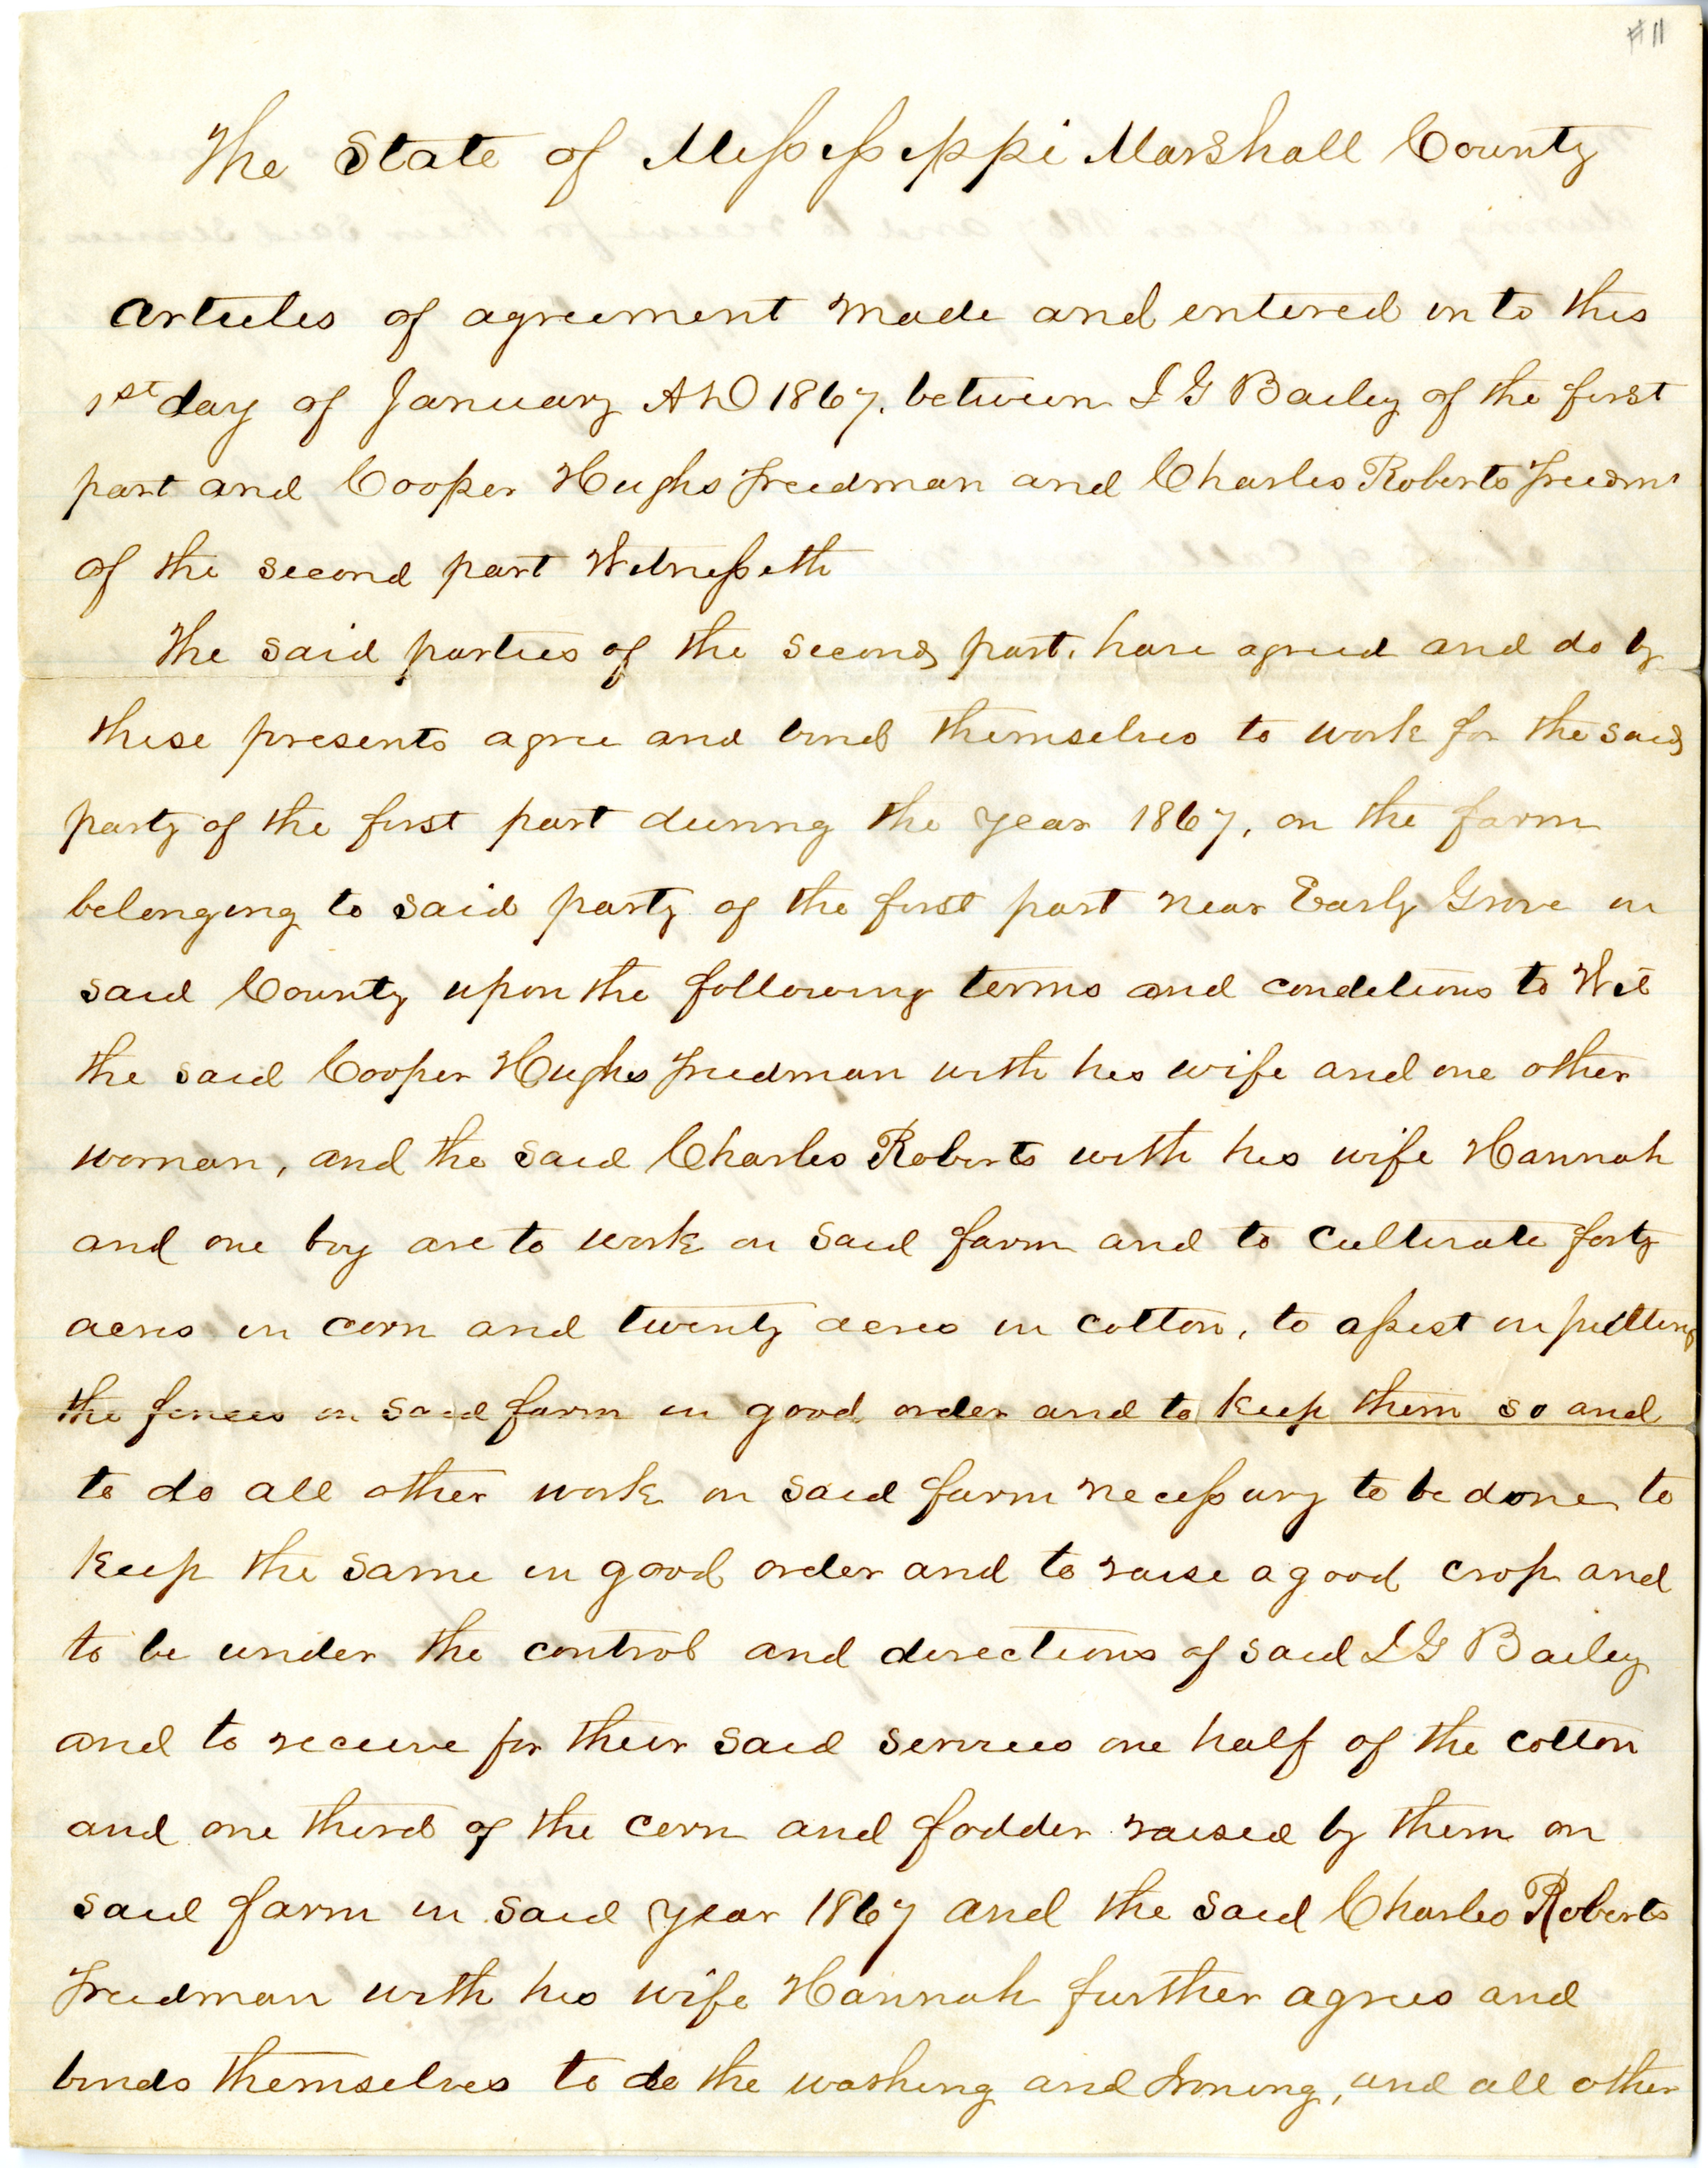 #11
The State of Mississippi Marshall County
Articles of agreement made and entered in to this
1st day of January AD 1867, between I G Bailey of the first
part and Cooper Hughs Freedman and Charles Roberts Freedm
of the second part Witnesseth
The said parties of the second part, have agreed and do by
these presents agree and bind themselves to work for the said
party of the first part during the year 1867, on the farm
belonging to said party of the first part near Early Grove in
said County upon the following terms and conditions to Wit
the said Cooper Hughs Freedman with his wife and one other
woman, and the said Charles Roberts with his wife Hannah
and one boy are to work on said farm and to cultivate forty
acres in corn and twenty acres in cotton, to assist in putting
the fences on said farm in good order and to keep them so and
to do all other work on said farm necessary to be done to
keep the same in good order and to raise a good crop and
to be under the control and directions of said I G Bailey
and to receive for their said services one half of the cotton
and one third of the corn and fodder raised by them on
said farm in said year 1867 and the said Charles Roberts
Freedman with his wife Hannah further agrees and
binds themselves to do the washing and Ironing, and all other